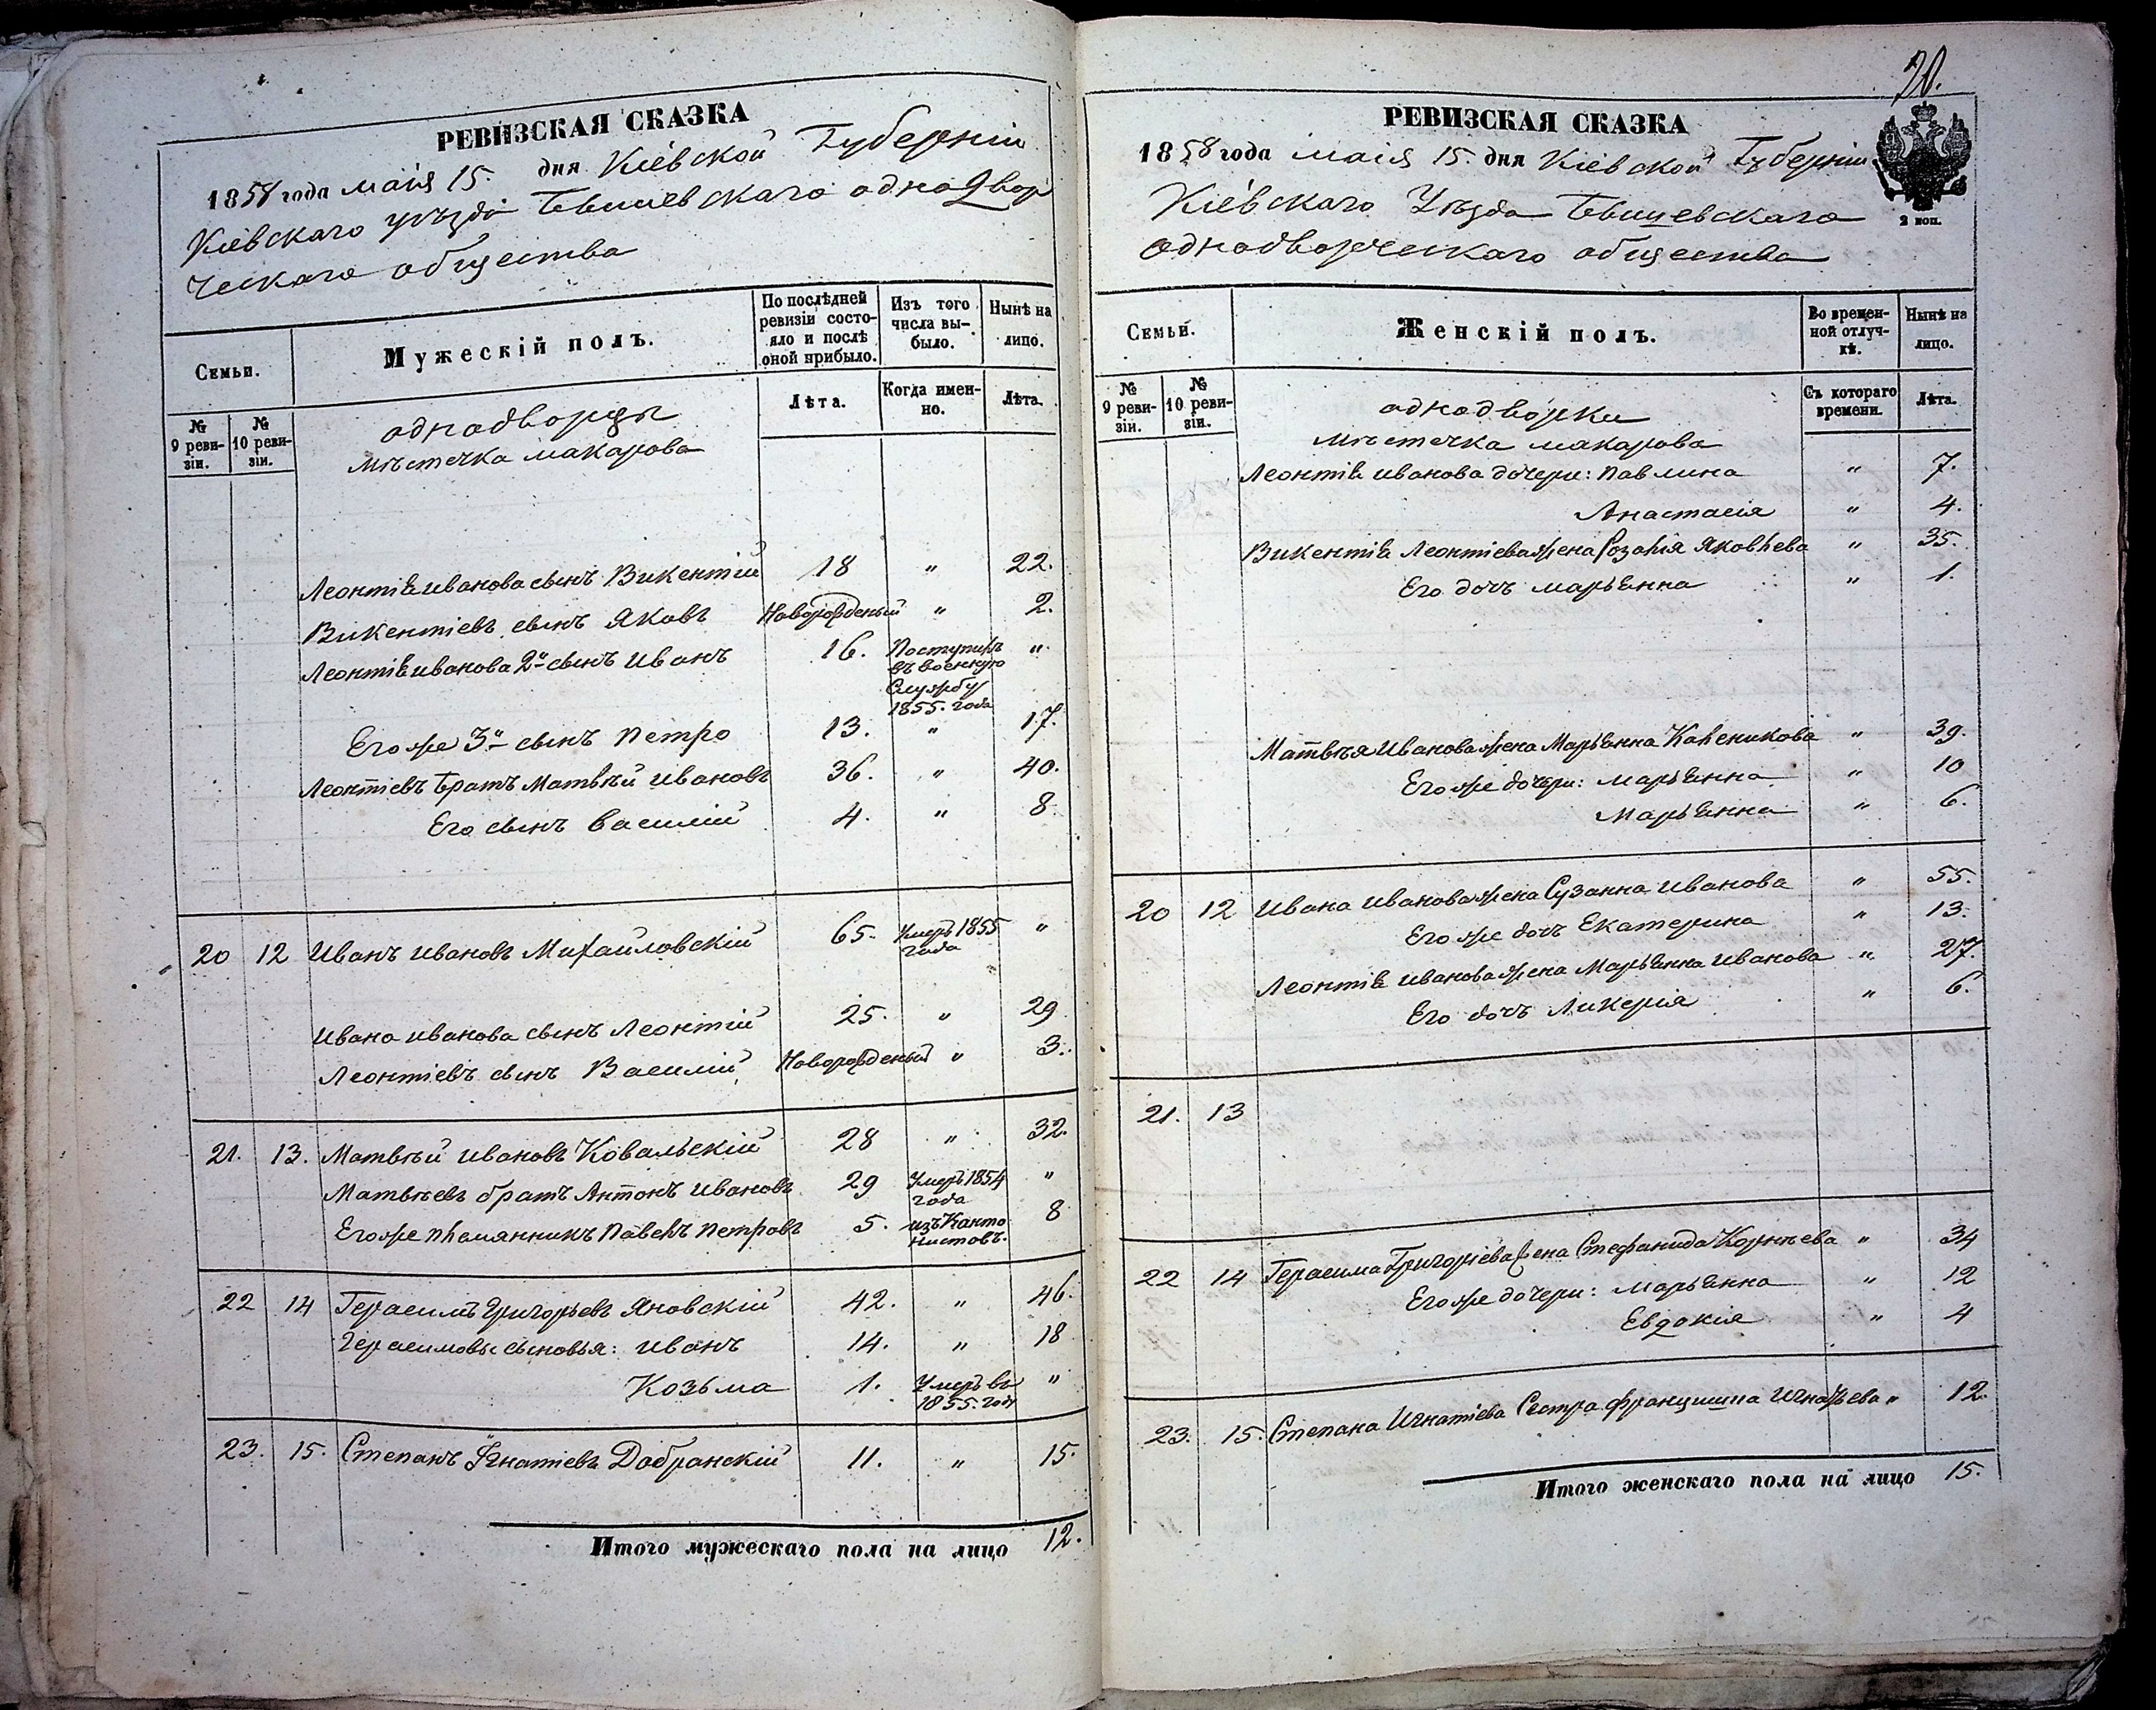 РЕВИЗСКАЯ СКАЗКА
1858 года маія 15. дня Кіевской Губерніи
Кіевскаго уѣзда Бышевскаго однодвор
ческаго общества
Семьи.
Мужескій полъ.
По послѣдней ревизіи состояло и послѣ оной прибыло.
Изъ того числа выбыло.
Нынѣ на лицо.
№ 9 ревизіи.
№ 10 ревизіи.
Лѣта.
Когда именно.
Лѣта.
однодворцы
мѣстечка макарова
Леонтія иванова сынъ Викентій 18 " 22.
Викентіевъ сынъ Яковъ Новорожденый " 2.
Леонтія иванова 2й сынъ иванъ 16. Поступилъ въ военную Службу 1855. года "
Его же 3й сынъ Петро 13. " 17.
Леонтіевъ братъ Матвѣй ивановъ 36. " 40.
Его сынъ василій 4. " 8
20 12 Иванъ ивановъ Михайловскій 65. Умеръ 1855 года "
ивана иванова сынъ Леонтій 25. " 29
Леонтіевъ сынъ Василій Новорожденый " 3.
21. 13. Матвѣй ивановъ Ковальскій 28 " 32.
Матвѣевъ братъ Антонъ ивановъ 29 Умеръ 1854 года "
Его же племянникъ Павелъ Петровъ 5. изъ Канто нистовъ. 8
22 14 Герасимъ Григорьевъ Яновскій 42. " 46.
Герасимовы сыновья: иванъ 14. " 18
Козьма 1. Умеръ въ 1855. году "
23. 15. Степанъ Игнатіевъ Добранскій 11. " 15.
Итого мужескаго пола на лицо 12.
20.
РЕВИЗСКАЯ СКАЗКА
1858 года маія 15. дня Кіевской Губерніи
Кіевскаго Уѣзда Бышевскаго
однодворческаго общества
2 коп.
Семьи.
Женскій полъ.
Во временной отлучкѣ.
Нынѣ на лицо.
№ 9 ревизіи.
№ 10 ревизіи.
Съ котораго времени.
Лѣта.
однодворки
мѣстечка макарова
Леонтія иванова дочери: павлина " 7.
Анастасія " 4.
Викентія Леонтіева жена Розалія Яковлева " 35.
Его дочь марьянна " 1.
Матвѣя Иванова жена Марьянна Каленикова " 39.
Его же дочери: марьянна " 10
Марьянна " 6.
20 12 Ивана иванова жена Сузанна иванова " 55.
Его же дочь Екатерина " 13.
Леонтія иванова жена Марьянна иванова " 27.
Его дочь Ликерія " 6.
21. 13
22 14 Герасима Григоріева жена Стефанида Корнѣева " 34
Его же дочери: марьянна " 12
Евдокія " 4
23. 15. Степана Игнатіева Сестра францишка Игнатьева " 12.
Итого женскаго пола на лицо 15.